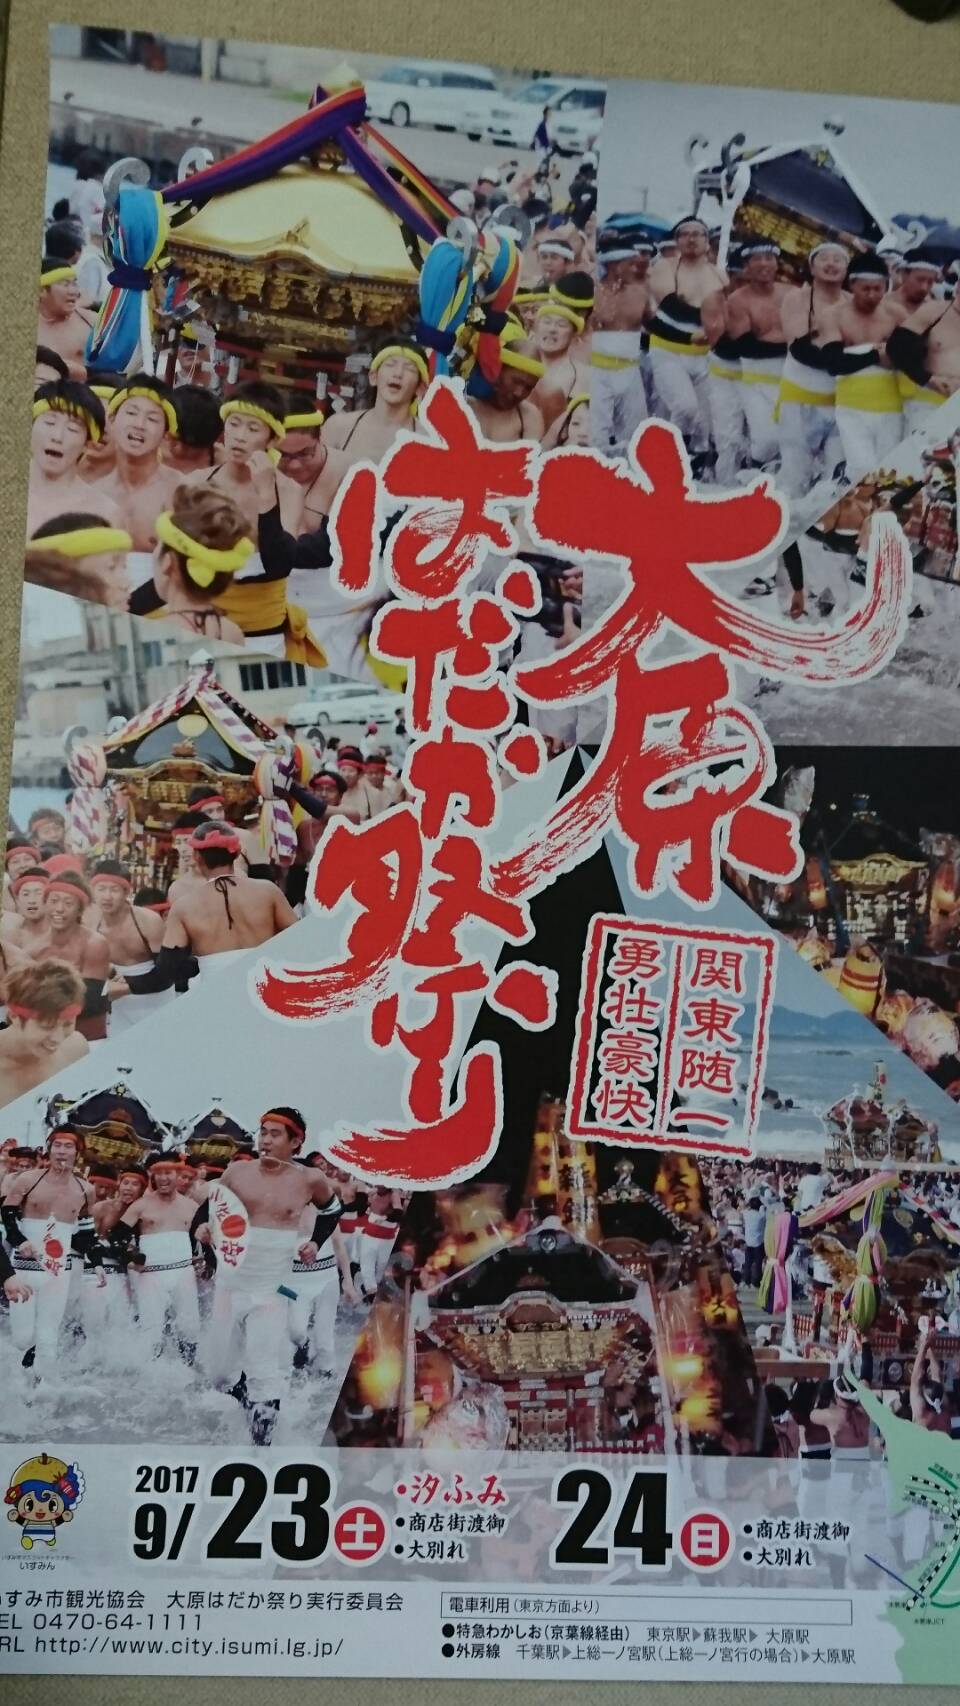 大原
はだか祭り
関東随一
勇壮豪快
2017
9/23土
・汐ふみ
●商店街渡御
●大別れ
24日
●商店街渡御
●大別れ
いすみん
すみ市観光協会 大原はだか祭り実行委員会
EL 0470-64-1111
RL http://www.city.isumi.lg.jp/
電車利用（東京方面より）
●特急わかしお（京葉線経由） 東京駅▶蘇我駅▶大原駅
●外房線 千葉駅▶上総一ノ宮駅（上総一ノ宮行の場合）▶大原駅